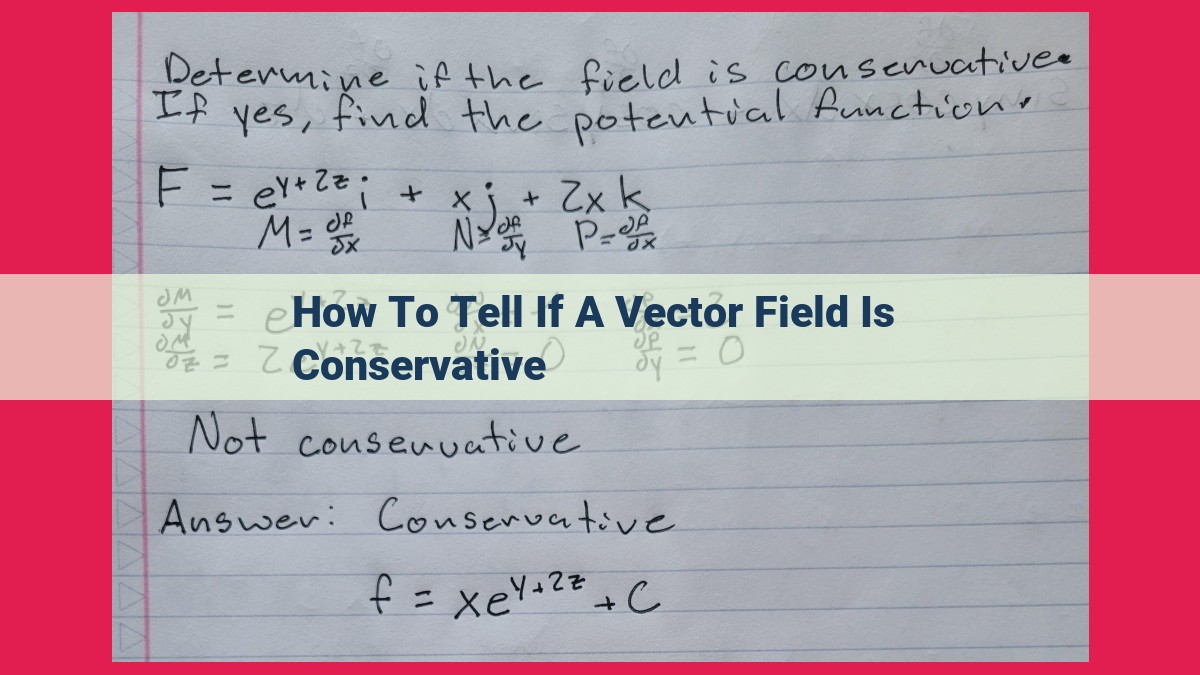 Determine if the field is conservative.
If yes, find the potential function.
F = e^{y+2z} i + x j + 2x k
M = ∂f/∂x N = ∂f/∂y P = ∂f/∂x
∂M/∂y = e
How To Tell If A Vector Field Is
∂M/∂z = 2 ^{y+2z} = 0 ∂P/∂y = 0
Conservative
Not conservative
Answer: Conservative
f = xe^{y+2z} + C